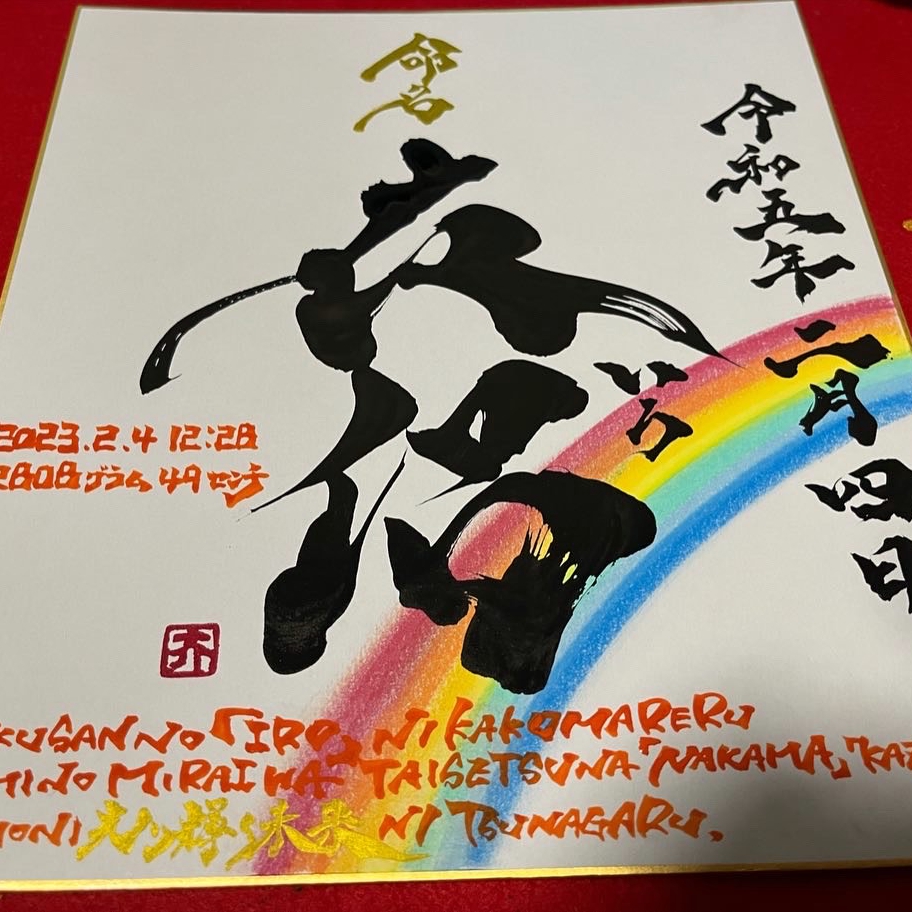 命名
衣侶
いろ
令和五年二月四日
2023.2.4 12:28
2808グラム 49センチ
KUSAN NO「IRO」NI KAKOMARERU
MINO MIRAI WA TAISETSUNA「NAKAMA」「KAZ
MONI 光り輝く未来 NI TSUNAGARU.